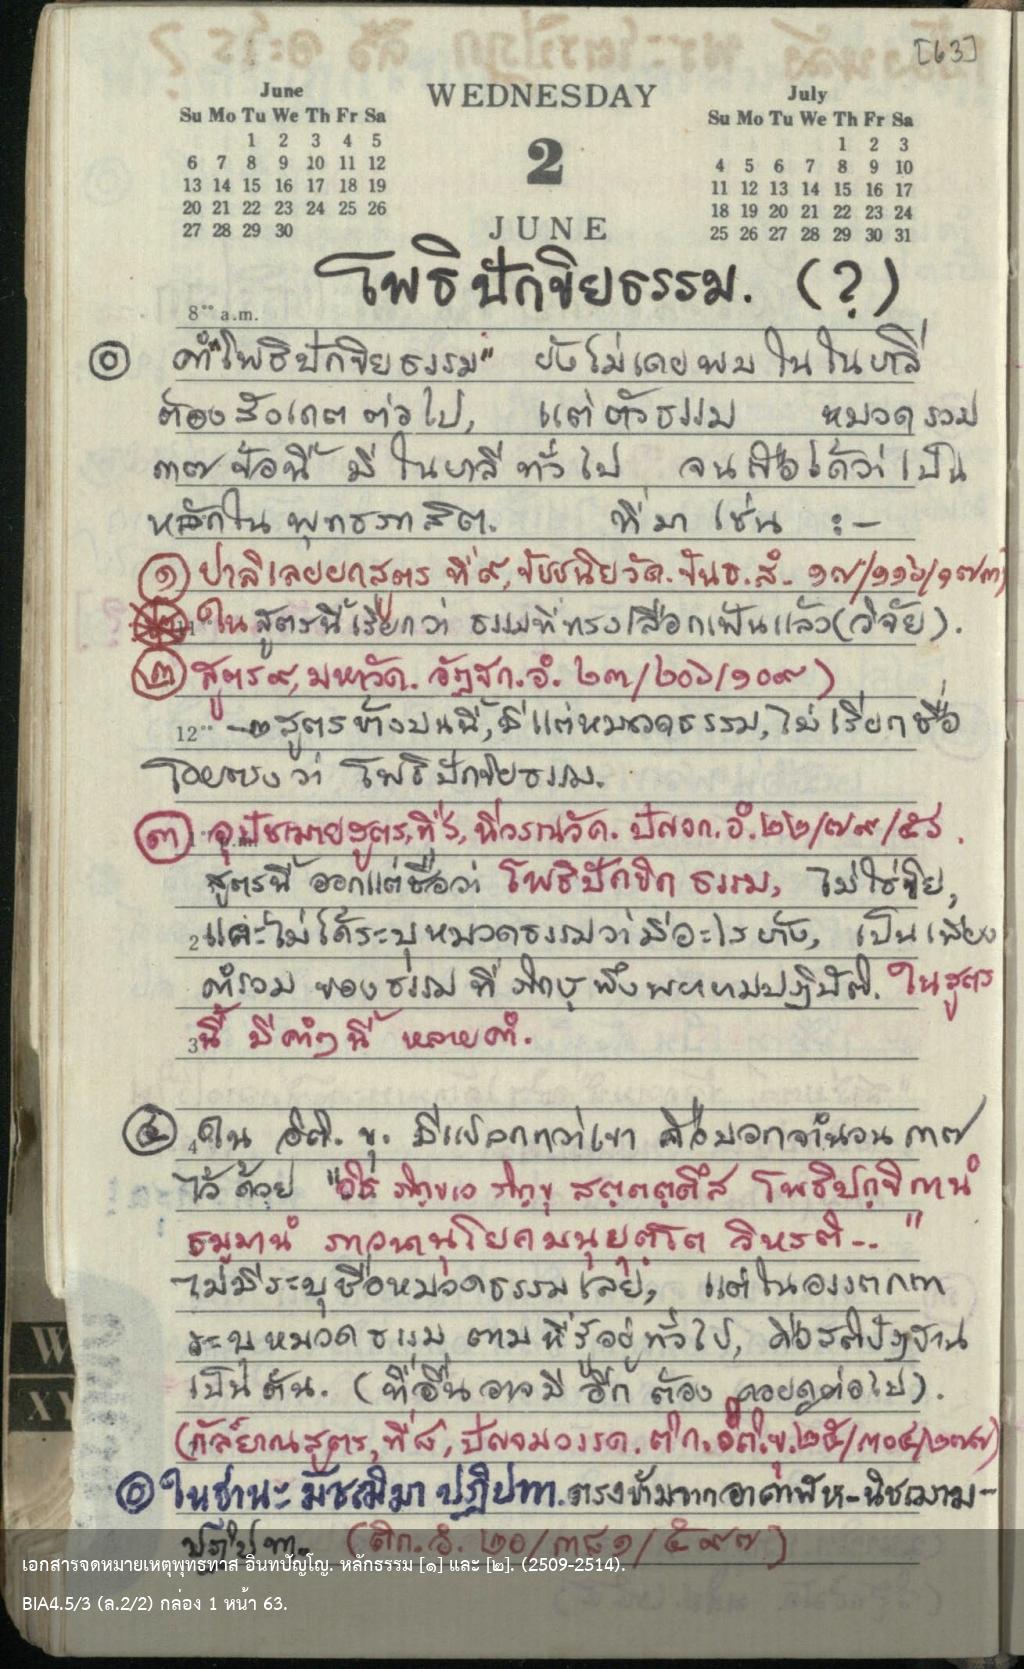 [63]
June
Su Mo Tu We Th Fr Sa
1 2 3 4 5
6 7 8 9 10 11 12
13 14 15 16 17 18 19
20 21 22 23 24 25 26
27 28 29 30
WEDNESDAY
2
JUNE
July
Su Mo Tu We Th Fr Sa
1 2 3
4 5 6 7 8 9 10
11 12 13 14 15 16 17
18 19 20 21 22 23 24
25 26 27 28 29 30 31
โพธิปักขิยธรรม. (?)
8⁰⁰ a.m.
คำ "โพธิปักขิยธรรม" ยังไม่เคยพบ ในบาลี
ต้องสังเกตต่อไป, แต่ตัวธรรม หมวดรวม
๓๗ ข้อนี้ มีในบาลีทั่วไป จนถือได้ว่าเป็น
หลักในพุทธศาสนา. ที่มา เช่น :-
๑ ปาลิเลยยกสูตร ที่ ๙, ขัชชนิยวัค. ขันธ. สํ. ๑๗/๑๑๖/๑๗๓
ในสูตรนี้เรียกว่า ธรรมที่ทรงเลือกเฟ้นแล้ว (วิจัย).
๒ สูตร ๙, มหาวัค. อัฏฐก. อํ. ๒๓/๒๐๖/๑๐๙)
12⁰⁰ -๒ สูตรข้างบนนี้, มีแต่หมวดธรรม, ไม่เรียกชื่อ
โดยตรงว่า โพธิปักขิยธรรม.
๓ อุปัชฌายสูตร, ที่ ๖, นีวรณวัค. ปัญจก. อํ. ๒๒/๗๙/๕๖.
สูตรนี้ ออกแต่ชื่อว่า โพธิปักขิกธรรม, ไม่ใช่ขิย,
2 และไม่ได้ระบุหมวดธรรมว่ามีอะไรบ้าง, เป็นเพียง
คำรวม ของธรรมที่ ภิกษุพึงพยายามปฏิบัติ. ในสูตร
3 นี้ มีคำๆนี้ หลายคำ.
๔ 4 ใน อิติ. ขุ. มีแปลกกว่าเขา คือบอกจำนวน ๓๗
ไว้ด้วย "อิธ ภิกฺขเว ภิกฺขุ สตฺตตฺตึส โพธิปกฺขิกานํ
ธมฺมานํ ภาวนานุโยคมนุยุตฺโต วิหรติ..."
ไม่มีระบุชื่อหมวดธรรมเลย, แต่ในอรรถกถา
ระบุหมวดธรรม ตามที่รู้อยู่ทั่วไป, คือสติปัฏฐาน
เป็นต้น. (ที่อื่นอาจมีอีก ต้องคอยดูต่อไป).
(กัล์ยาณสูตร, ที่ ๘, ปัญจมวรรค. ติก. อิติ. ขุ. ๒๕/๓๐๔/๒๗๗)
ในฐานะ มัชฌิมาปฏิปทา. ตรงข้ามจากอาคาฬห-นิชฌาม-
ปฏิปทา. (ติก. อํ. ๒๐/๓๘๑/๕๙๗)
เอกสารจดหมายเหตุพุทธทาส อินทปัญโญ. หลักธรรม [๑] และ [๒]. (2509-2514).
BIA4.5/3 (ล.2/2) กล่อง 1 หน้า 63.